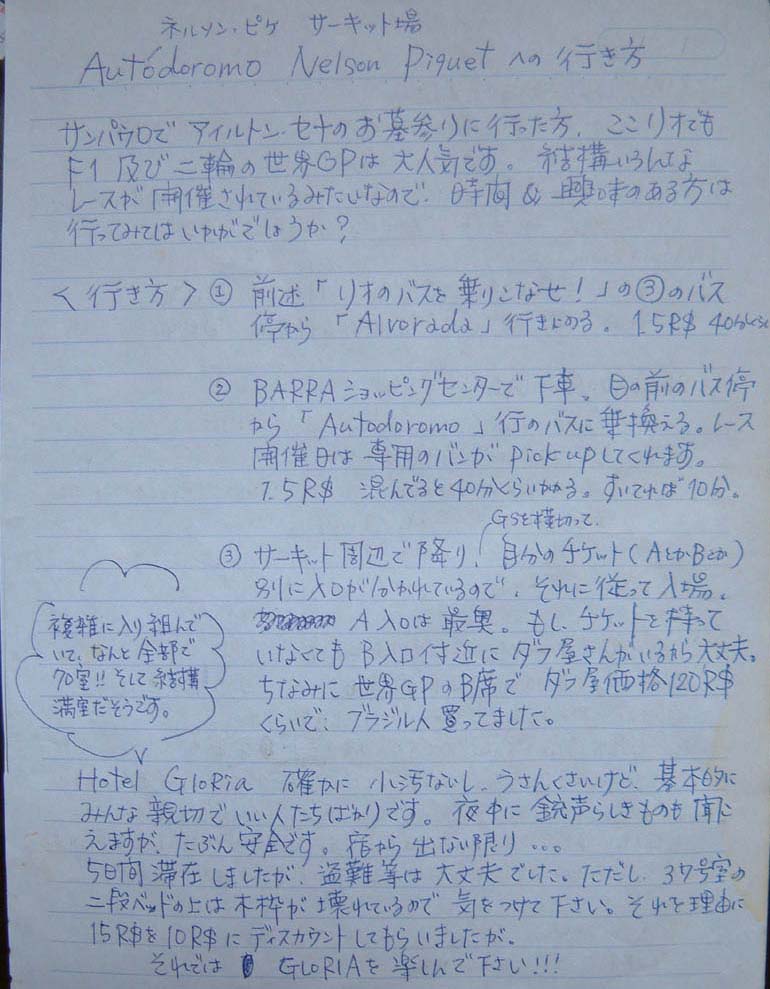 ネルソン・ピケ サーキット場
Autódoromo Nelson Piquet への行き方
サンパウロで アイルトン・セナのお墓参りに行った方、ここリオでも
F1 及び二輪の世界GPは 大人気です。結構いろんな
レースが 開催されているみたいなので、時間 & 興味のある方は
行ってみてはいかがでしょうか?
<行き方> ① 前述「リオのバスを乗りこなせ!」の③のバス
停から 「Alvorada」行きにのる。 1.5R$ 40分くらい
② BARRAショッピングセンターで下車。目の前のバス停
から「Autodoromo」行のバスに乗換える。レース
開催日は 専用のバンが pick up してくれます。
1.5R$ 混んでると40分くらいかかる。すいてれば10分。
GSを横切って、
③ サーキット周辺で降り、自分のチケット(AとかBとか)
別に入口が分かれているので、それに従って入場。
A入口は最奥。もし、チケットを持って
いなくても B入口付近に ダフ屋さんがいるから大丈夫。
ちなみに 世界GPのB席で ダフ屋価格120R$
くらいで、ブラジル人 買ってました。
複雑に入り組んで
いて、なんと全部で
70室!! そして結構
満室だそうです。
Hotel GloRia 確かに 小汚ないし、うさんくさいけど、基本的に
みんな親切でいい人たちばかりです。夜中に 銃声らしきものも聞こ
えますが、たぶん安全です。宿から 出ない限り...。
5日間滞在しましたが、盗難等は大丈夫でした。ただし、37号室の
二段ベッドの上は木枠が壊れているので 気をつけて下さい。それを理由に
15R$を10R$に ディスカウントしてもらいましたが。
それでは GLORIAを楽しんで下さい!!!